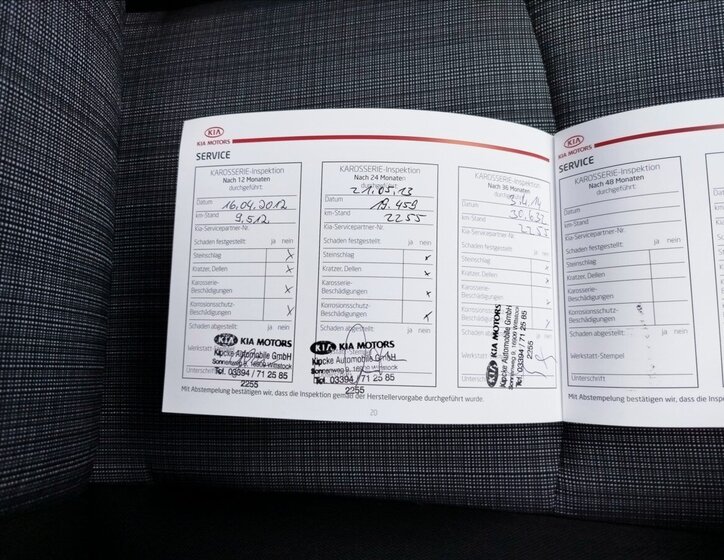 KIA
KIA MOTORS
SERVICE
KAROSSERIE-Inspektion
Nach 12 Monaten
durchgeführt:
Datum 16.04.2012
km-Stand 9.512
Kia-Servicepartner-Nr.
Schaden festgestellt: ja nein
Steinschlag x
Kratzer, Dellen x
Karosserie-
Beschädigungen x
Korrosionsschutz-
Beschädigungen x
Schaden abgestellt: ja nein
KIA KIA MOTORS
Kupcke Automobile GmbH
Werkstatt-Stempel
Sonnenweg 9, 16909 Wittstock
Unterschrift
Tel. 03394 / 71 25 85
2255
KAROSSERIE-Inspektion
Nach 24 Monaten
durchgeführt:
21.05.13
Datum 19.459
km-Stand 2255
Kia-Servicepartner-Nr.
Schaden festgestellt: ja nein
Steinschlag x
Kratzer, Dellen x
Karosserie-
Beschädigungen x
Korrosionsschutz-
Beschädigungen x
Schaden abgestellt: ja nein
KIA KIA MOTORS
Kupcke Automobile GmbH
Sonnenweg 9, 16909 Wittstock
Tel. 03394 / 71 25 85
2255
KAROSSERIE-Inspektion
Nach 36 Monaten
durchgeführt:
Datum
km-Stand 30.632
Kia-Servicepartner-Nr. 2255
Schaden festgestellt: ja nein
Steinschlag x
Kratzer, Dellen x
Karosserie-
Beschädigungen x
Korrosionsschutz-
Beschädigungen x
Schaden abgestellt: ja nein
Werkstatt-Stempel
Unterschrift
KIA KIA MOTORS
Kupcke Automobile GmbH
Sonnenweg 9, 16909 Wittstock
Tel. 03394 / 71 25 85
2255
Mit Abstempelung bestätigen wir, dass die Inspektion gemäß der Herstellervorgabe durchgeführt wurde.
20
KIA
KIA MOTORS
SERVICE
KAROSSERIE-Inspektion
Nach 48 Monaten
durchgeführt:
Datum
km-Stand
Kia-Servicepartner-Nr.
Schaden festgestellt: ja nein
Steinschlag
Kratzer, Dellen
Karosserie-
Beschädigungen
Korrosionsschutz-
Beschädigungen
Schaden abgestellt: ja nein
Werkstatt-Stempel
Unterschrift
Mit Abstempelung bestätigen wir, dass die Ins